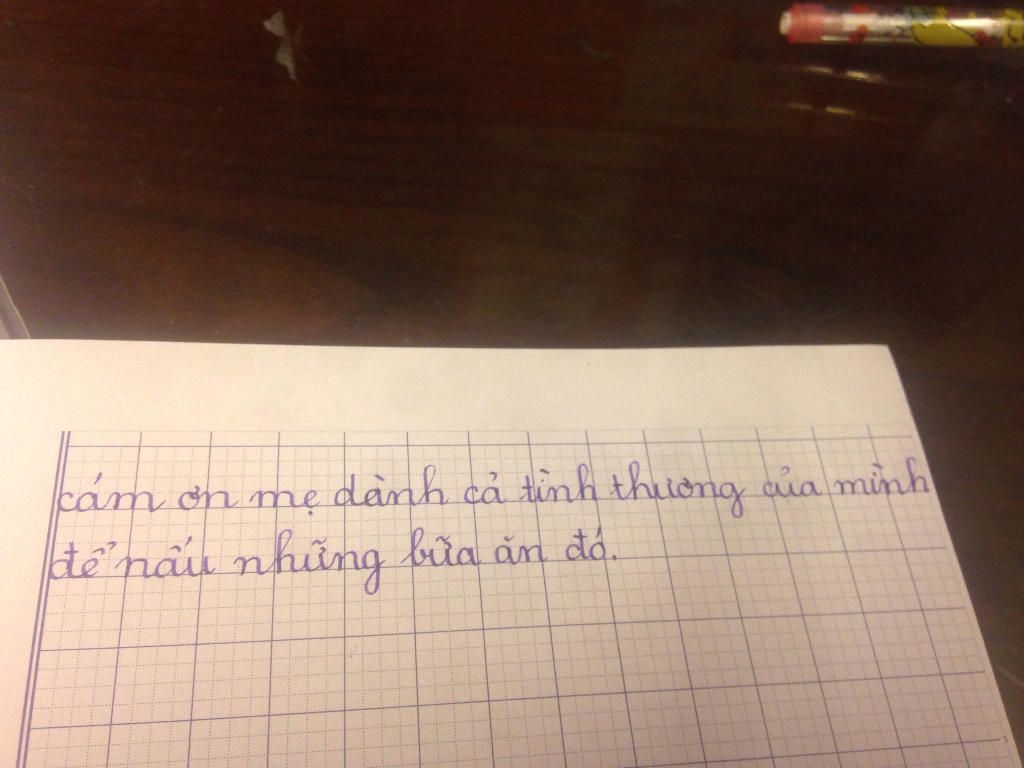 cám ơn mẹ dành cả tình thương của mình
để nấu những bữa ăn đó.